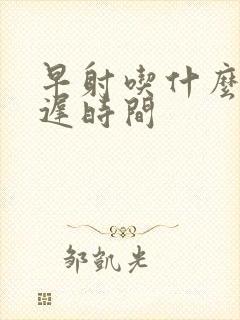 早射喫什麼
遲時間
鄒凱光